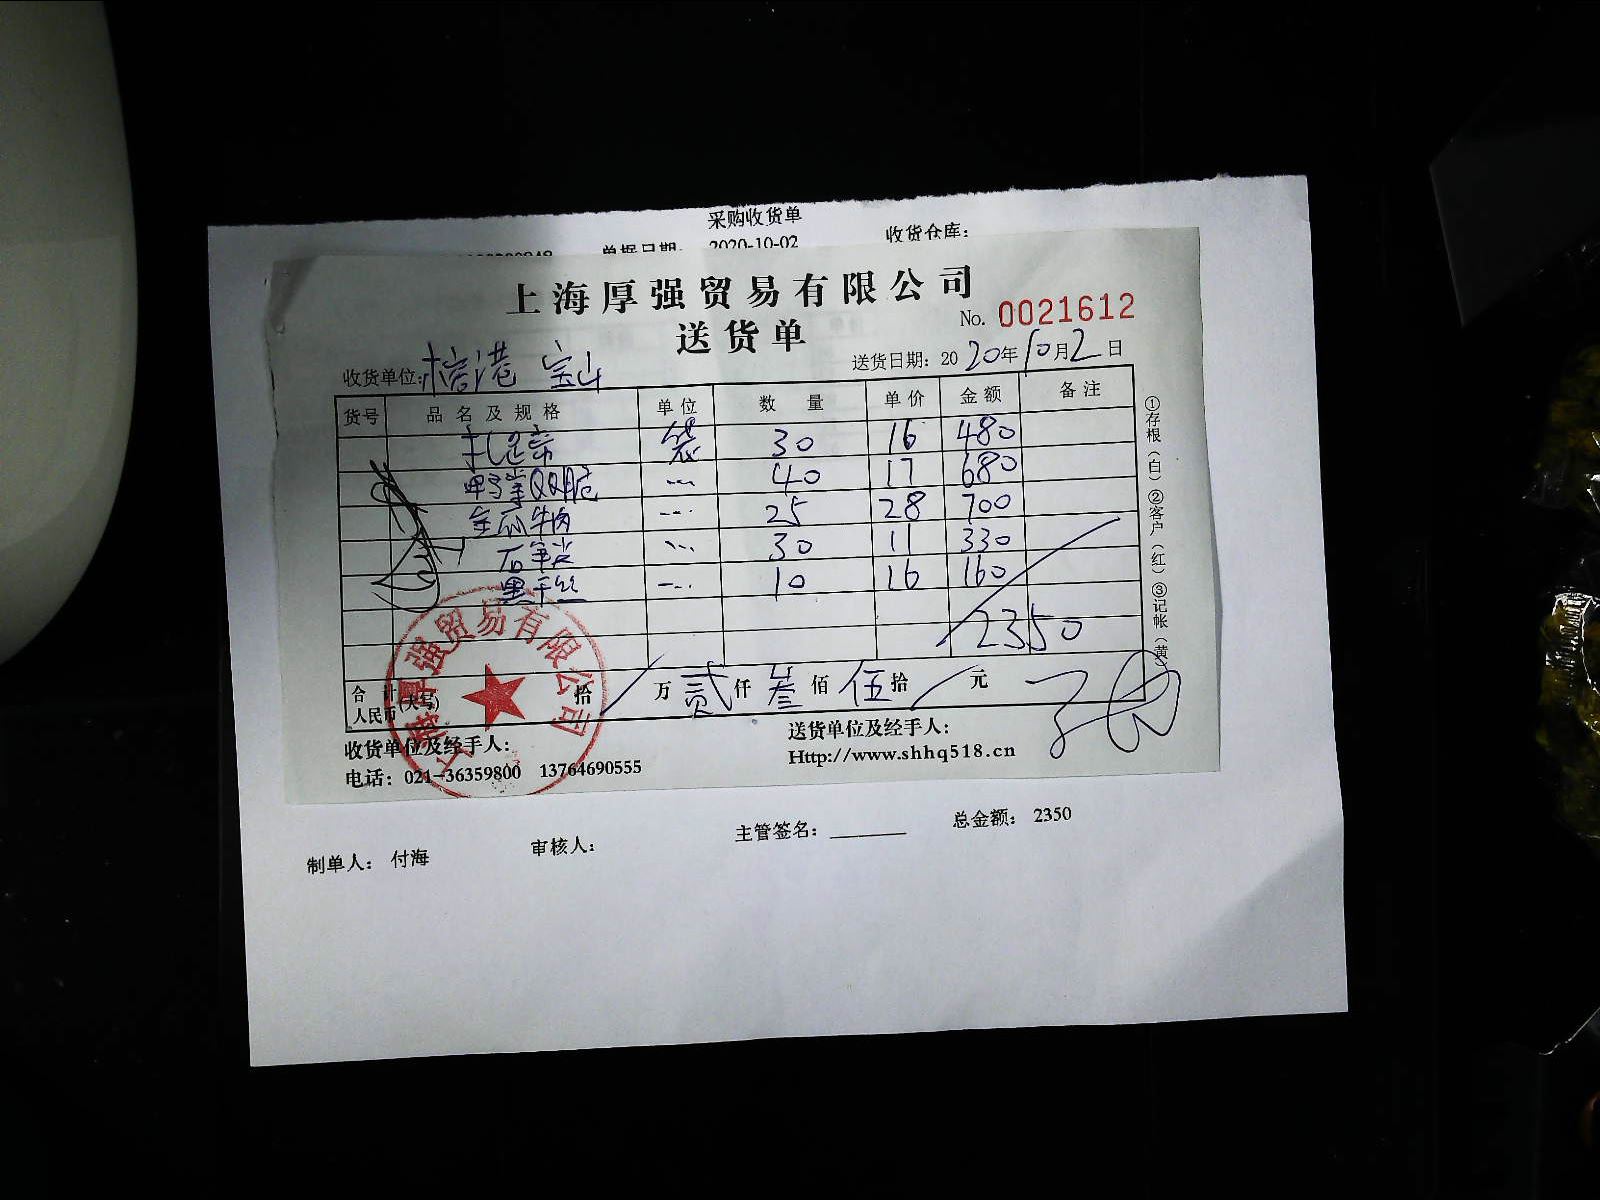 采购收货单
单据日期： 2020-10-02 收货仓库：
上海厚强贸易有限公司
送货单 No. 0021612
收货单位: 港 宝山 送货日期: 2020年10月2日
货号 品名及规格 单位 数量 单价 金额 备注
袋 30 16 480
鸭掌QQ脆 40 17 680
金瓜牛肉 25 28 700
石笋尖 30 11 330
黑干丝 10 16 160
2350
合计人民币(大写) 拾 万 贰 仟 叁 佰 伍 拾 元
收货单位及经手人: 送货单位及经手人:
电话: 021-36359800 13764690555 Http://www.shhq518.cn
①存根（白）②客户（红）③记帐（黄）
上海厚强贸易有限公司
制单人： 付海 审核人： 主管签名： 总金额： 2350